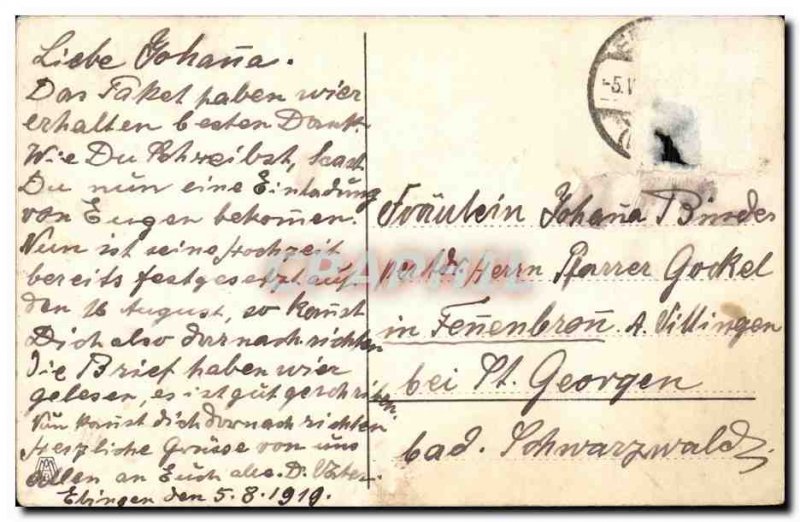 Liebe Johan̄a.
Das Paket haben wier
erhalten besten Dank.
Wie Du Schreibst, hast
Du nun eine Einladung
von Eugen bekom̄en.
Nun ist seine Hochzeit
bereits festgesetzt auf
den 16 August, so kan̄st
Dich also darnach richten
Die Brief haben wier
gelesen, es ist gut geschrieben.
Nun kan̄st dich darnach richten
Herzliche Grüsse von uns
allen an Euch alle. D. Vater
Ebingen den 5.8.1919.
-5.
Fräulein Johan̄a Binder
Herrn Pfarrer Gockel
in Ten̄enbron̄ A. Villingen
bei St. Georgen
bad. Schwarzwald